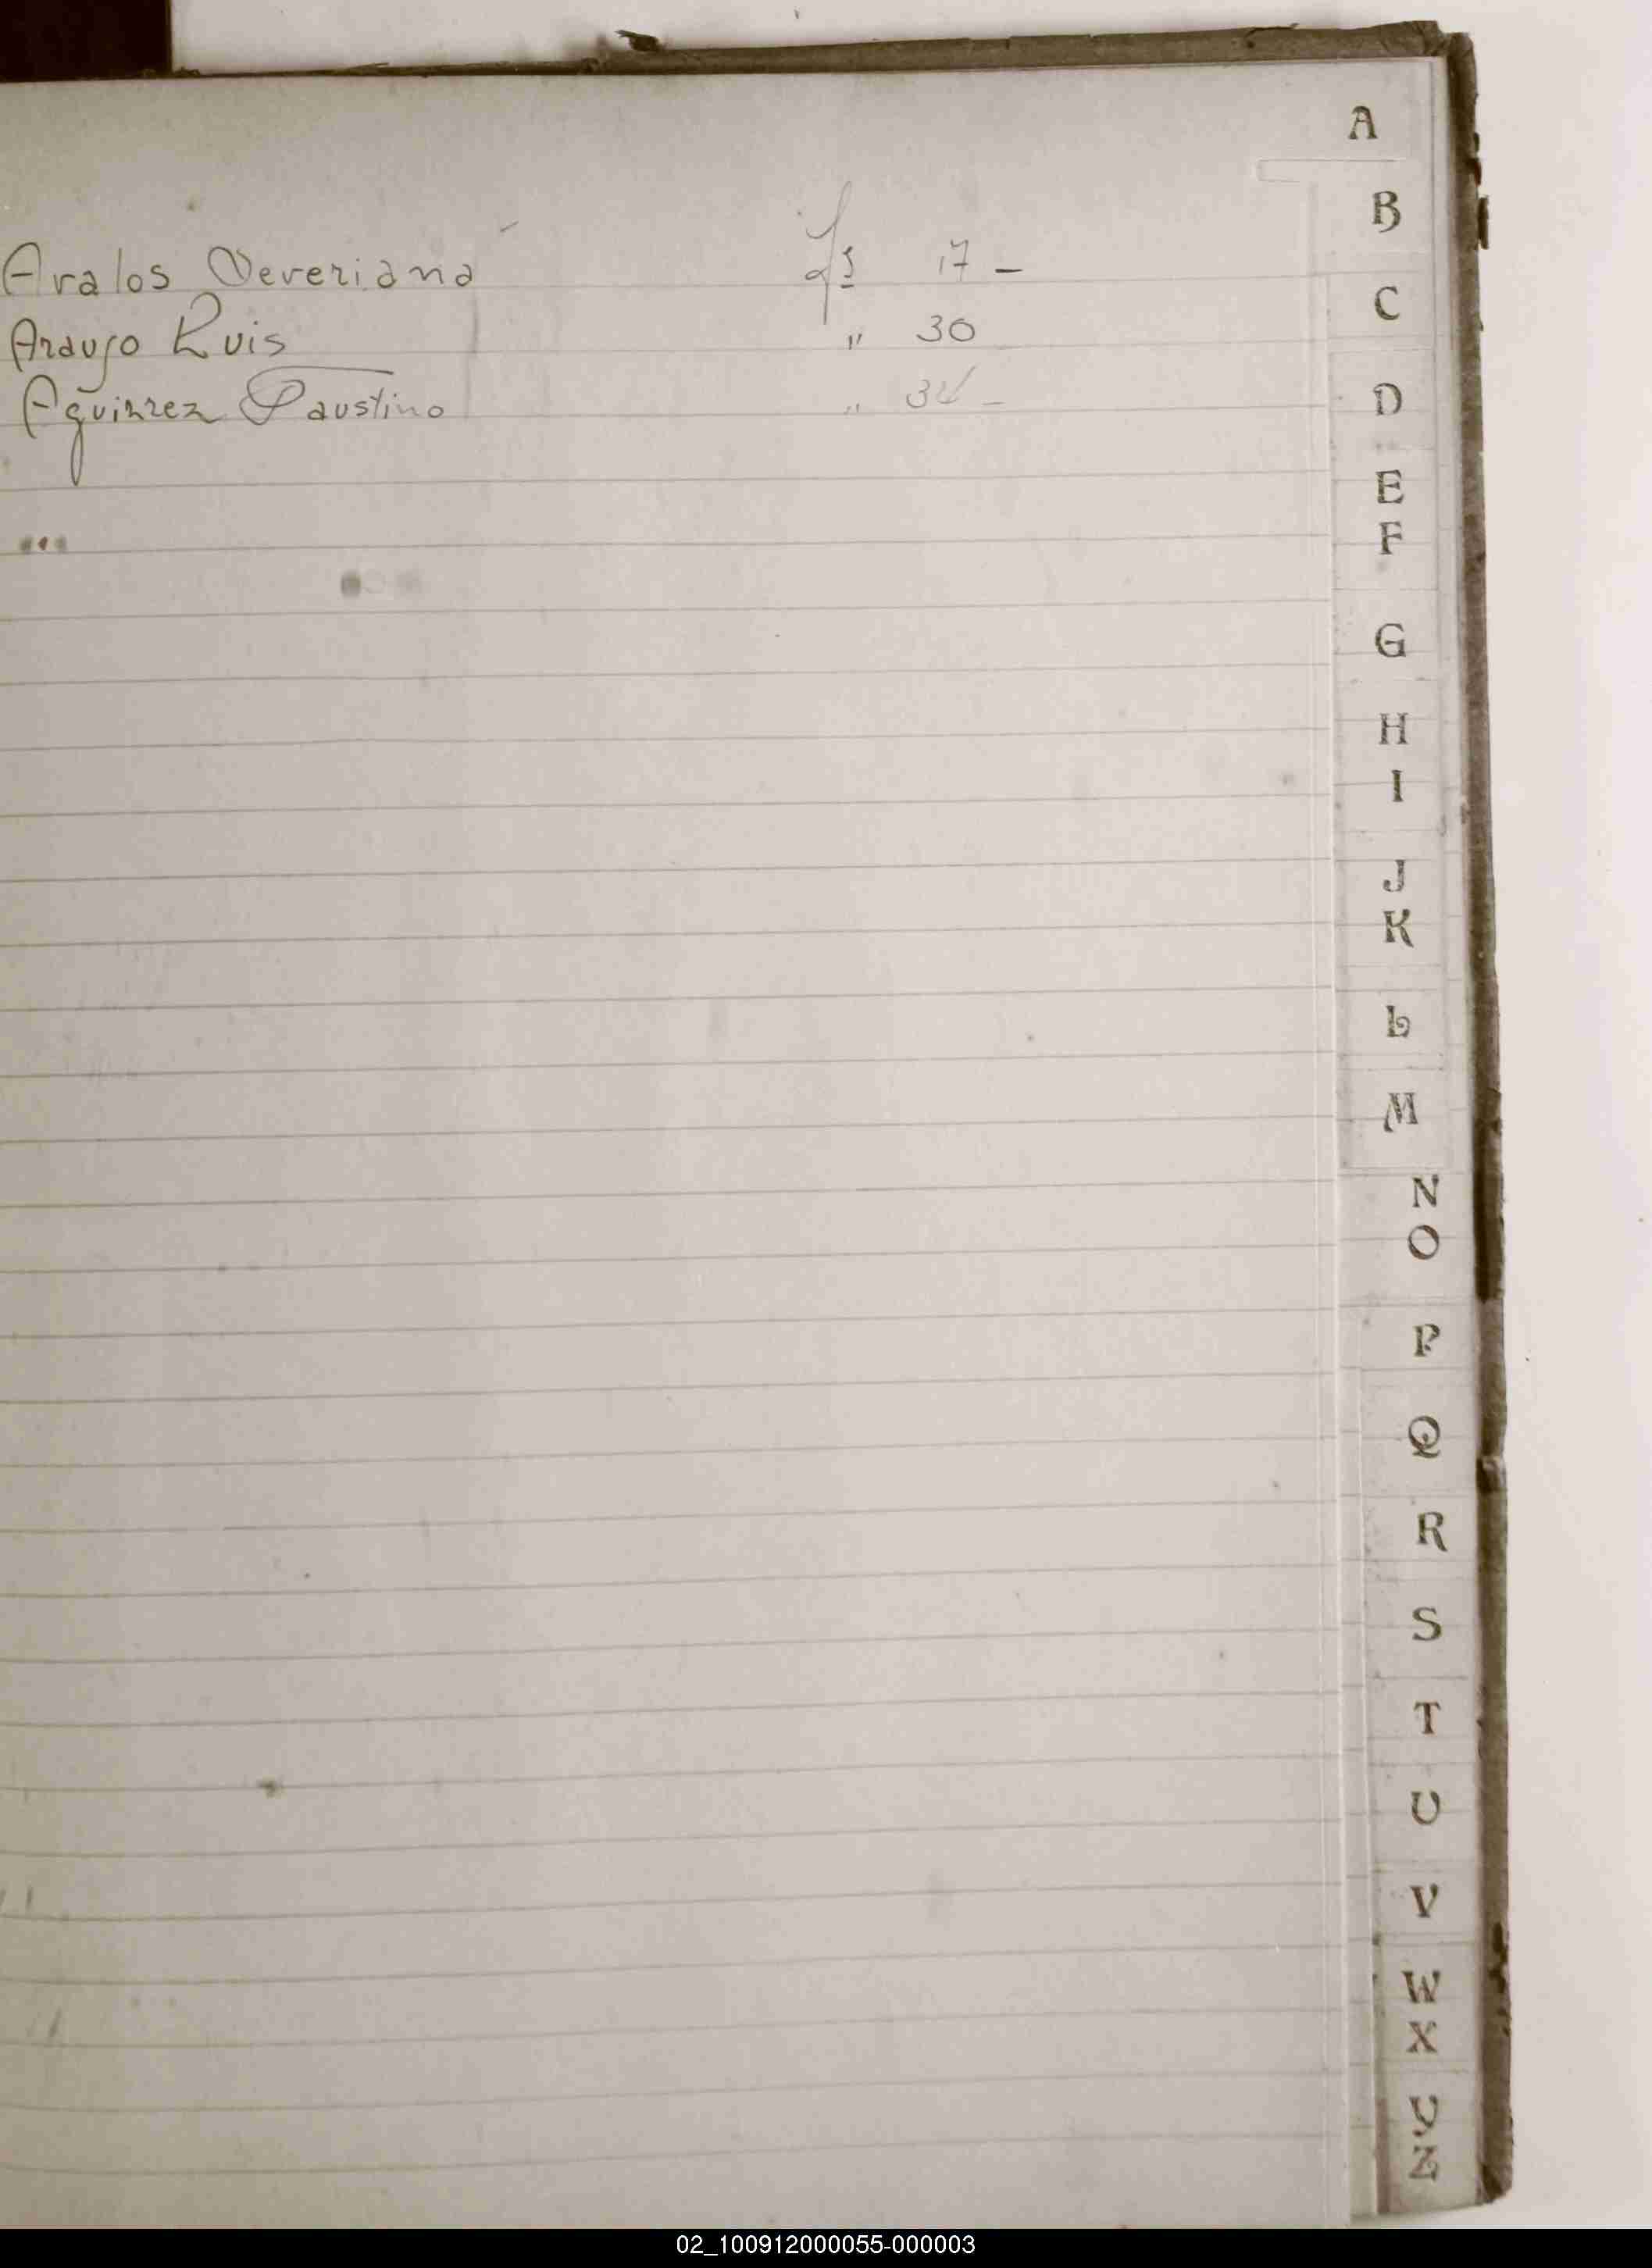 A
B
Avalos Severiana fs 17 -
C
Araujo Luis " 30
Aguirrez Faustino " 34 -
D
E
F
G
H
I
J
K
L
M
N
O
P
Q
R
S
T
U
V
W
X
Y
Z
02_100912000055-000003